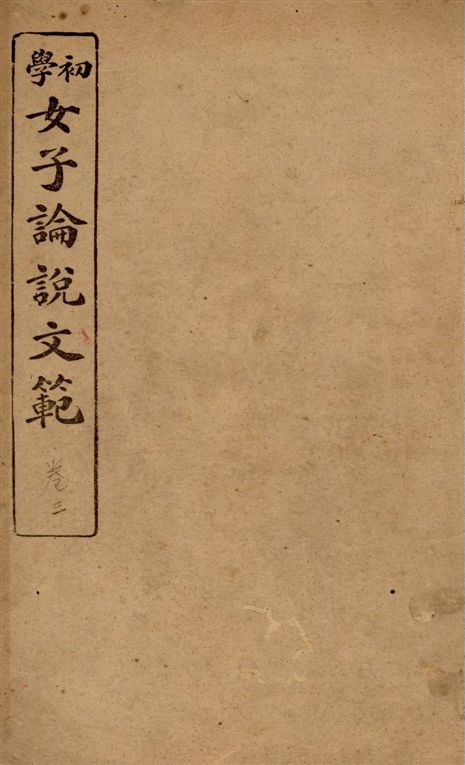 初學女子論說文範
卷三